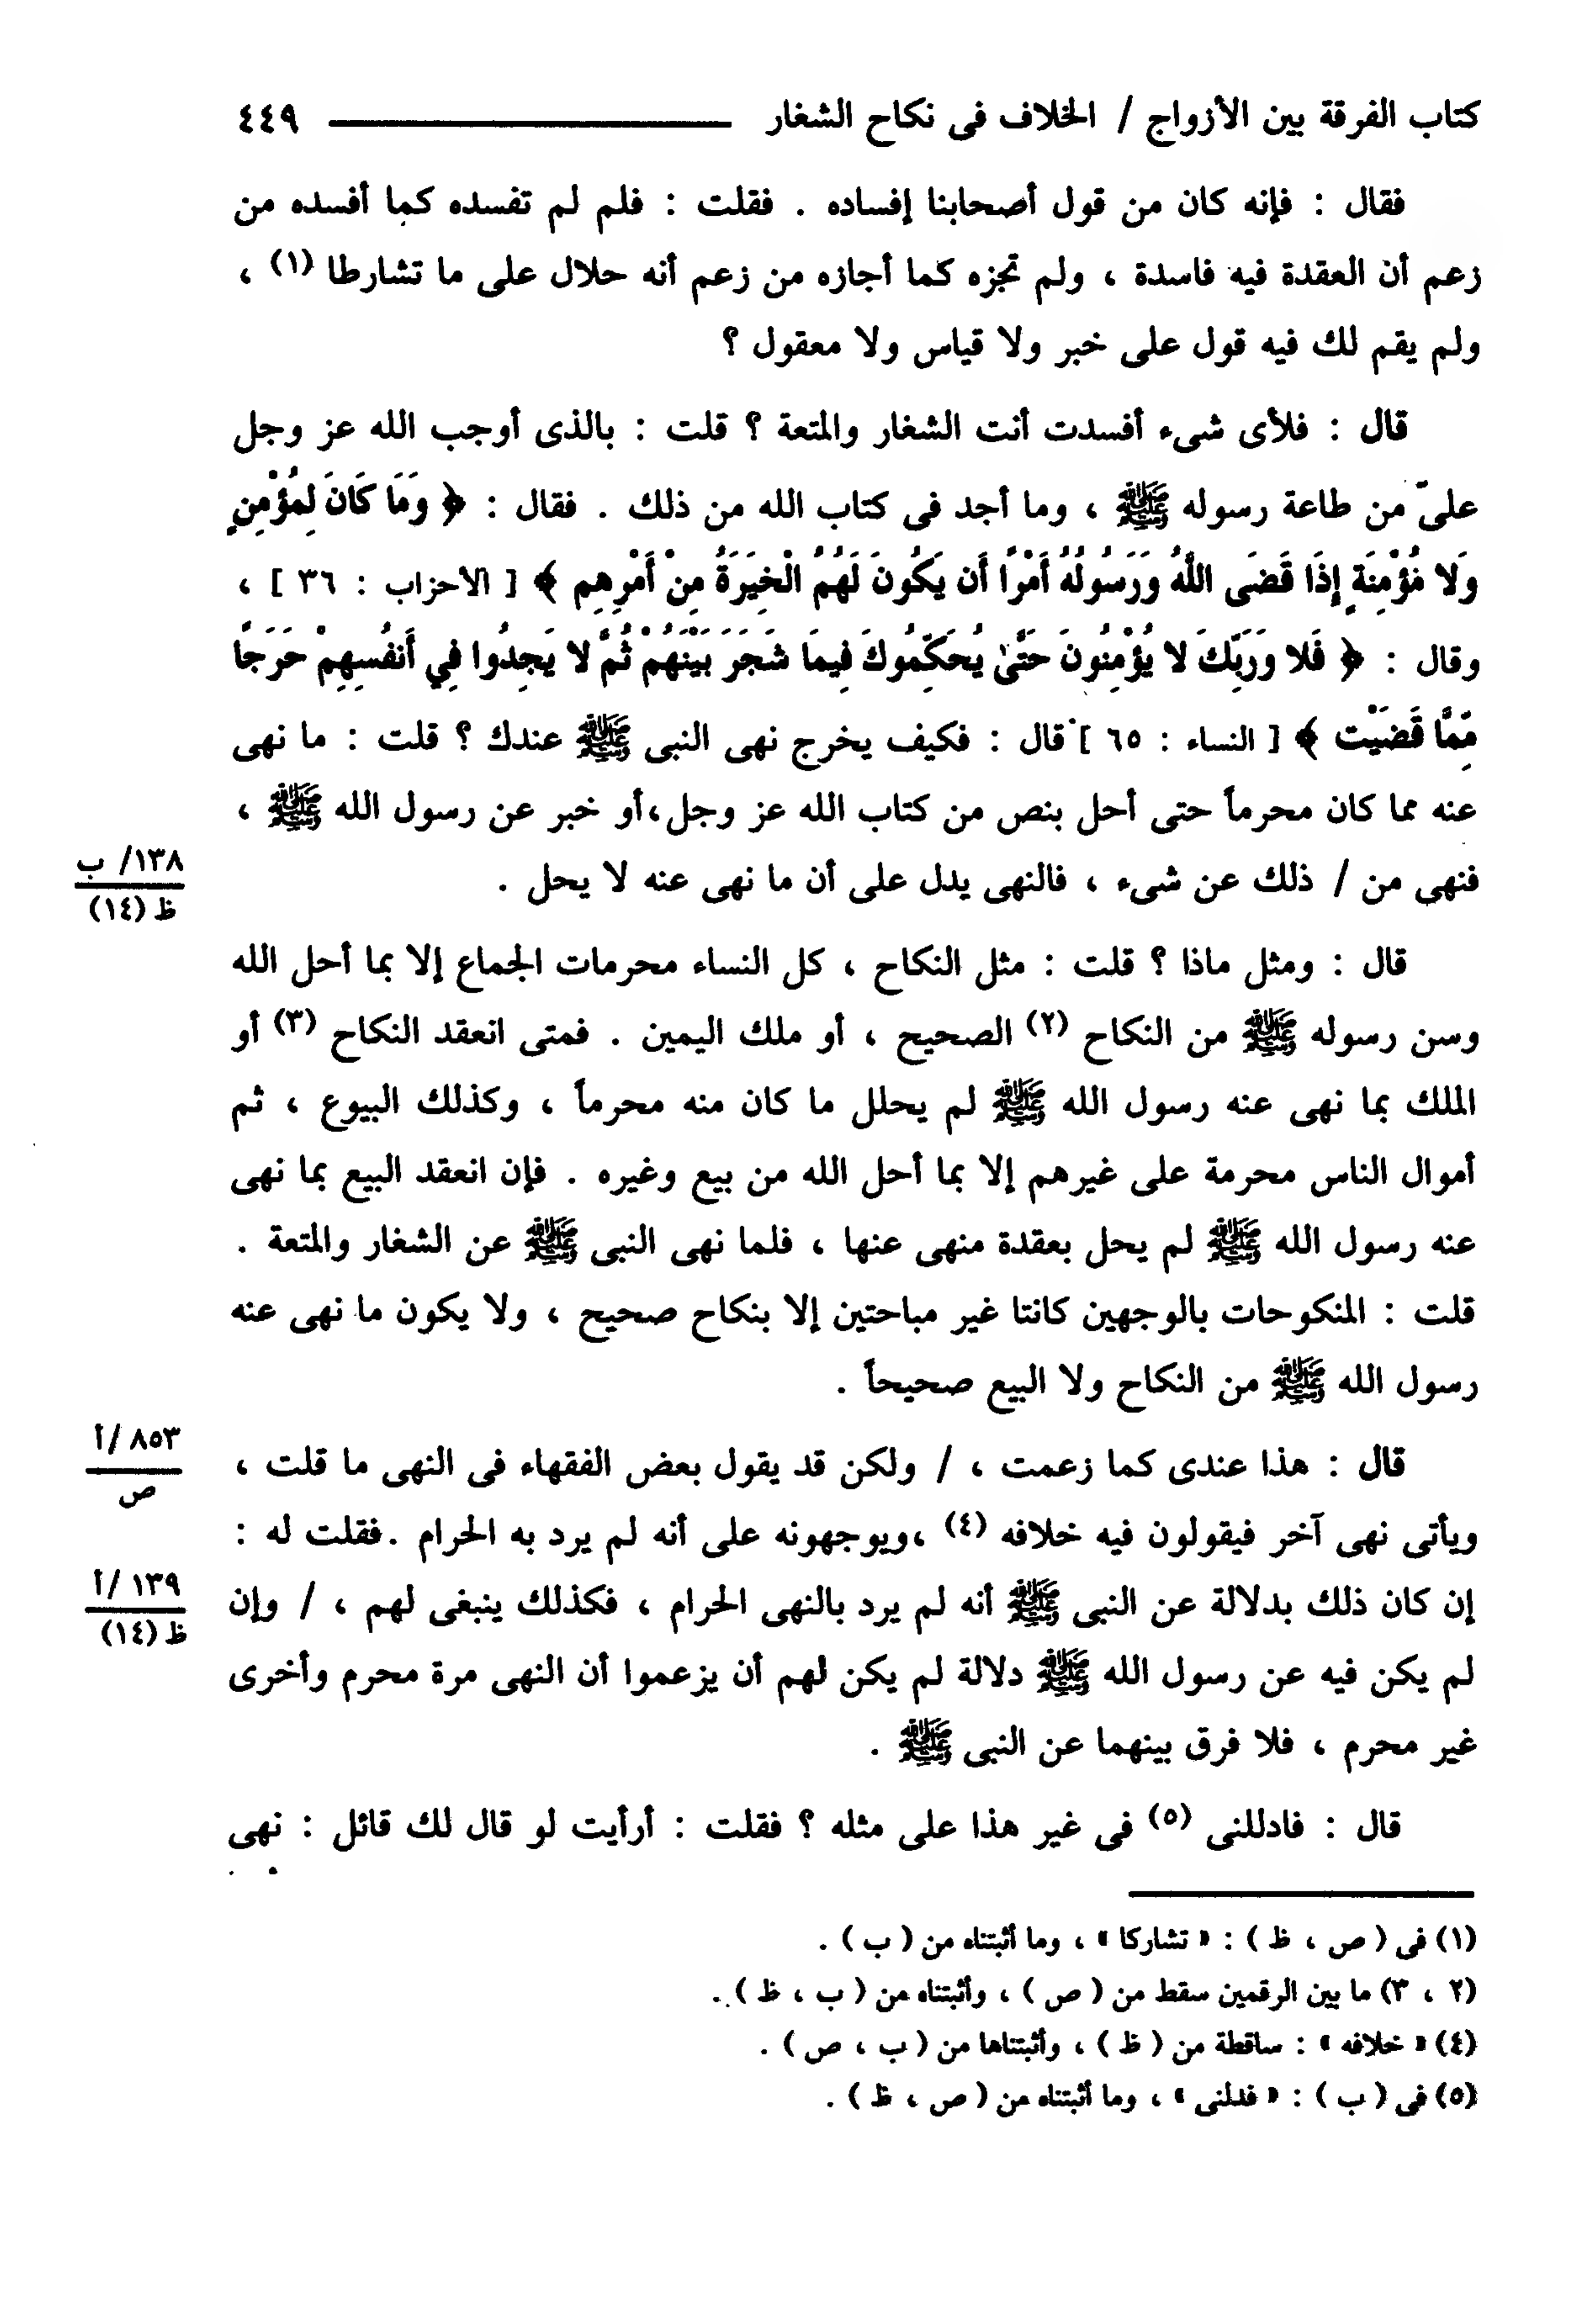 كتاب الفرقة بين الأزواج / الخلاف فى نكاح الشغار ــــــــــ ٤٤٩
فقال : فإنه كان من قول أصحابنا إفساده . فقلت : فلم لم تفسده كما أفسده من
زعم أن العقدة فيه فاسدة ، ولم تجزه كما أجازه من زعم أنه حلال على ما تشارطا (١) ،
ولم يقم لك فيه قول على خبر ولا قياس ولا معقول ؟
قال : فلأى شىء أفسدت أنت الشغار والمتعة ؟ قلت : بالذى أوجب الله عز وجل
علىّ من طاعة رسوله ﷺ ، وما أجد فى كتاب الله من ذلك . فقال : ﴿ وَمَا كَانَ لِمُؤْمِنٍ
وَلا مُؤْمِنَةٍ إِذَا قَضَى اللَّهُ وَرَسُولُهُ أَمْرًا أَن يَكُونَ لَهُمُ الْخِيَرَةُ مِنْ أَمْرِهِم ﴾ [ الأحزاب : ٣٦ ] ،
وقال : ﴿ فَلا وَرَبِّكَ لا يُؤْمِنُونَ حَتَّىٰ يُحَكِّمُوكَ فِيمَا شَجَرَ بَيْنَهُمْ ثُمَّ لا يَجِدُوا فِي أَنفُسِهِمْ حَرَجًا
مِّمَّا قَضَيْت ﴾ [ النساء : ٦٥ ] قال : فكيف يخرج نهى النبى ﷺ عندك ؟ قلت : ما نهى
عنه مما كان محرماً حتى أحل بنص من كتاب الله عز وجل،أو خبر عن رسول الله ﷺ ،
فنهى من / ذلك عن شىء ، فالنهى يدل على أن ما نهى عنه لا يحل .
١٣٨/ ب
ظ (١٤)
قال : ومثل ماذا ؟ قلت : مثل النكاح ، كل النساء محرمات الجماع إلا بما أحل الله
وسن رسوله ﷺ من النكاح (٢) الصحيح ، أو ملك اليمين . فمتى انعقد النكاح (٣) أو
الملك بما نهى عنه رسول الله ﷺ لم يحلل ما كان منه محرماً ، وكذلك البيوع ، ثم
أموال الناس محرمة على غيرهم إلا بما أحل الله من بيع وغيره . فإن انعقد البيع بما نهى
عنه رسول الله ﷺ لم يحل بعقدة منهى عنها ، فلما نهى النبى ﷺ عن الشغار والمتعة .
قلت : المنكوحات بالوجهين كانتا غير مباحتين إلا بنكاح صحيح ، ولا يكون ما نهى عنه
رسول الله ﷺ من النكاح ولا البيع صحيحاً .
قال : هذا عندى كما زعمت ، / ولكن قد يقول بعض الفقهاء فى النهى ما قلت ،
٨٥٣ /أ
ص
ويأتى نهى آخر فيقولون فيه خلافه (٤) ،ويوجهونه على أنه لم يرد به الحرام .فقلت له :
إن كان ذلك بدلالة عن النبى ﷺ أنه لم يرد بالنهى الحرام ، فكذلك ينبغى لهم ، / وإن
١٣٩ /أ
ظ (١٤)
لم يكن فيه عن رسول الله ﷺ دلالة لم يكن لهم أن يزعموا أن النهى مرة محرم وأخرى
غير محرم ، فلا فرق بينهما عن النبى ﷺ .
قال : فادللنى (٥) فى غير هذا على مثله ؟ فقلت : أرأيت لو قال لك قائل : نهى
(١) فى ( ص ، ظ ) : « تشاركا » ، وما أثبتناه من ( ب ) .
(٢ ، ٣) ما بين الرقمين سقط من ( ص ) ، وأثبتناه من ( ب ، ظ ) .
(٤) « خلافه » : ساقطة من ( ظ ) ، وأثبتناها من ( ب ، ص ) .
(٥) فى ( ب ) : « فدلنى » ، وما أثبتناه من ( ص ، ظ ) .